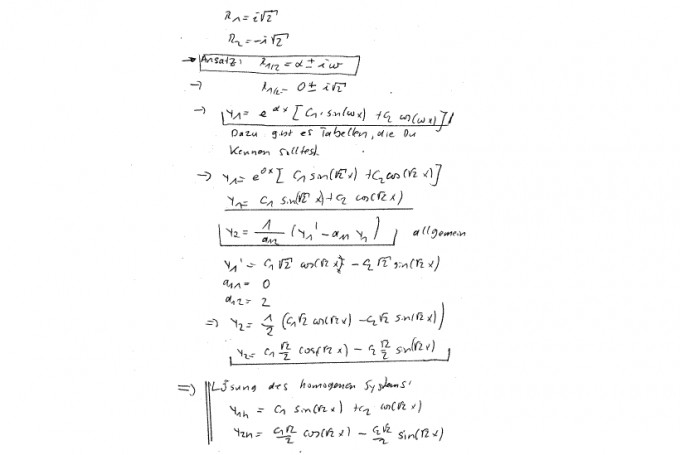 λ₁ = i√2
λ₂ = -i√2
→ Ansatz: λ₁/₂ = α ± iω
→ λ₁/₂ = 0 ± i√2
→ y₁ = e^(αx) [C₁·sin(ωx) + C₂ cos(ωx)]
Dazu gibt es Tabellen, die Du
kennen solltest.
→ y₁ = e^(0x) [C₁ sin(√2 x) + C₂ cos(√2 x)]
y₁ = C₁ sin(√2 x) + C₂ cos(√2 x)
y₂ = 1/a₁₂ (y₁' - a₁₁ y₁) allgemein
y₁' = C₁ √2 cos(√2 x) - C₂ √2 sin(√2 x)
a₁₁ = 0
a₁₂ = 2
⇒ y₂ = 1/2 (C₁√2 cos(√2 x) - C₂√2 sin(√2 x))
y₂ = C₁ √2/2 cos(√2 x) - C₂ √2/2 sin(√2 x)
⇒ Lösung des homogenen Systems:
y₁h = C₁ sin(√2 x) + C₂ cos(√2 x)
y₂h = C₁√2/2 cos(√2 x) - C₂√2/2 sin(√2 x)